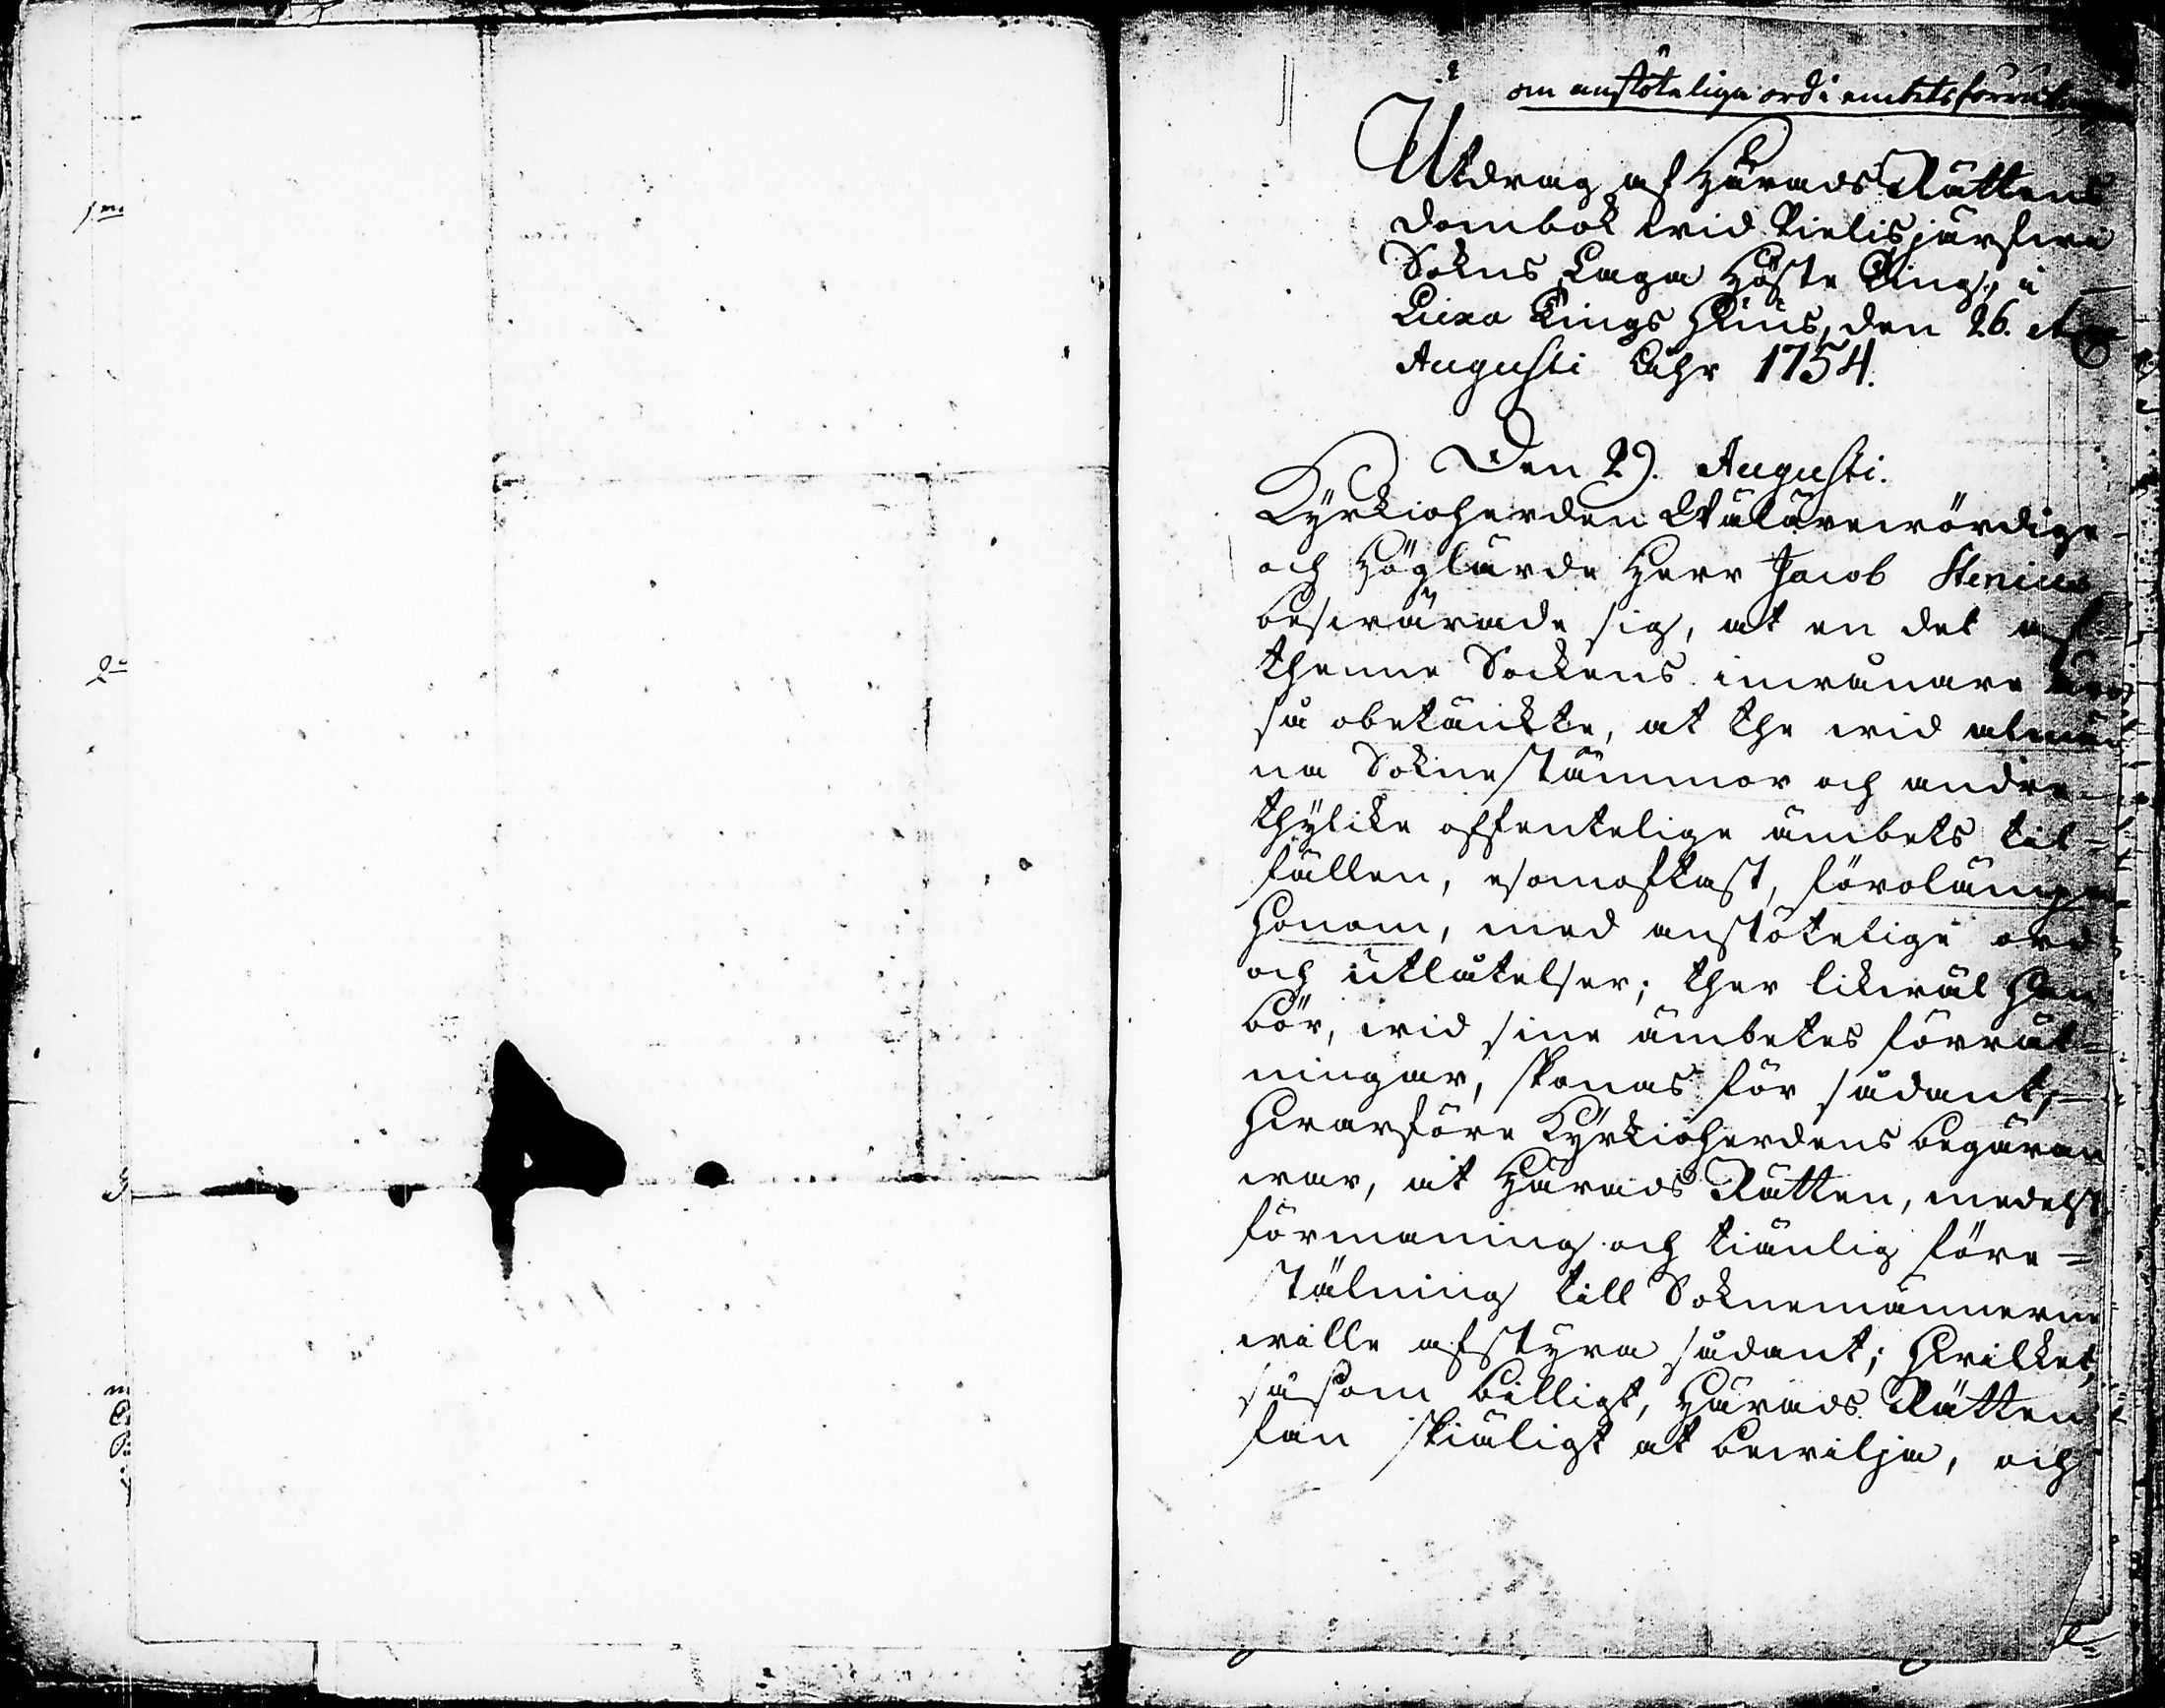 om anstöteliga ord i embets förrätn
Utdrag af Härads Rättens
dombok wid Pielisjärfwi
Sokns Laga Höste Ting, i
Liexa Tings Huus, den 26. et
Augusti Åhr 1754.
Den 29. Augusti.
Kyrkioherden Wälärewördige
och Höglärde Herr Jacob Stenius
beswärade sig, at en del af
thenne Sockens inwånare äro
så obetänkte, at the wid almän
na Soknestämmor och andre
thylike offentelige ämbets til=
fällen, esomoftast, förolämpa
honom, med anstötelige ord
och utlåtelser; ther likwäl han
bör, wid sine ämbetes förrät=
ningar, skonas för sådant,
hwarföre Kyrkioherdens begäran
war, at Härads Rätten, medelst
förmaning och tiänlig före=
stälning till Soknemännerne
wille afstyra sådant; hwilket,
såsom billigt, Härads Rätten
fan skiäligt at bewilja, och